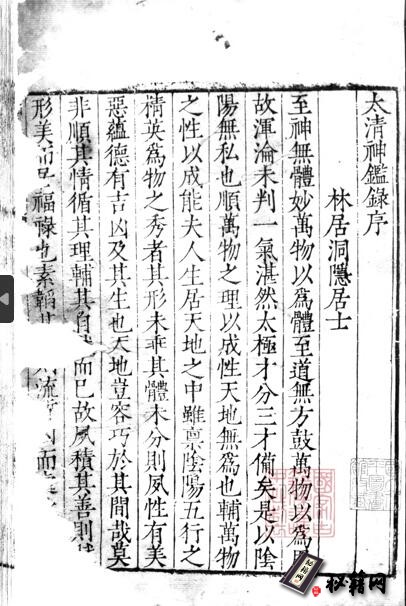 太清神鑑錄序
林居洞隱居士
至神無體妙萬物以爲體至道無方鼓萬物以爲
故渾淪未判一氣湛然太極才分三才備矣是以陰
陽無私也順萬物之理以成性天地無爲也輔萬物
之性以成能夫人生居天地之中雖稟陰陽五行之
精英爲物之秀者其形未乖其體未分則夙性有美
惡蘊德有吉凶及其生也天地豈容巧於其間哉莫
非順其情循其理輔其自 而已故夙積其善則
形美而 福祿也素 其 流 而
秘籍网